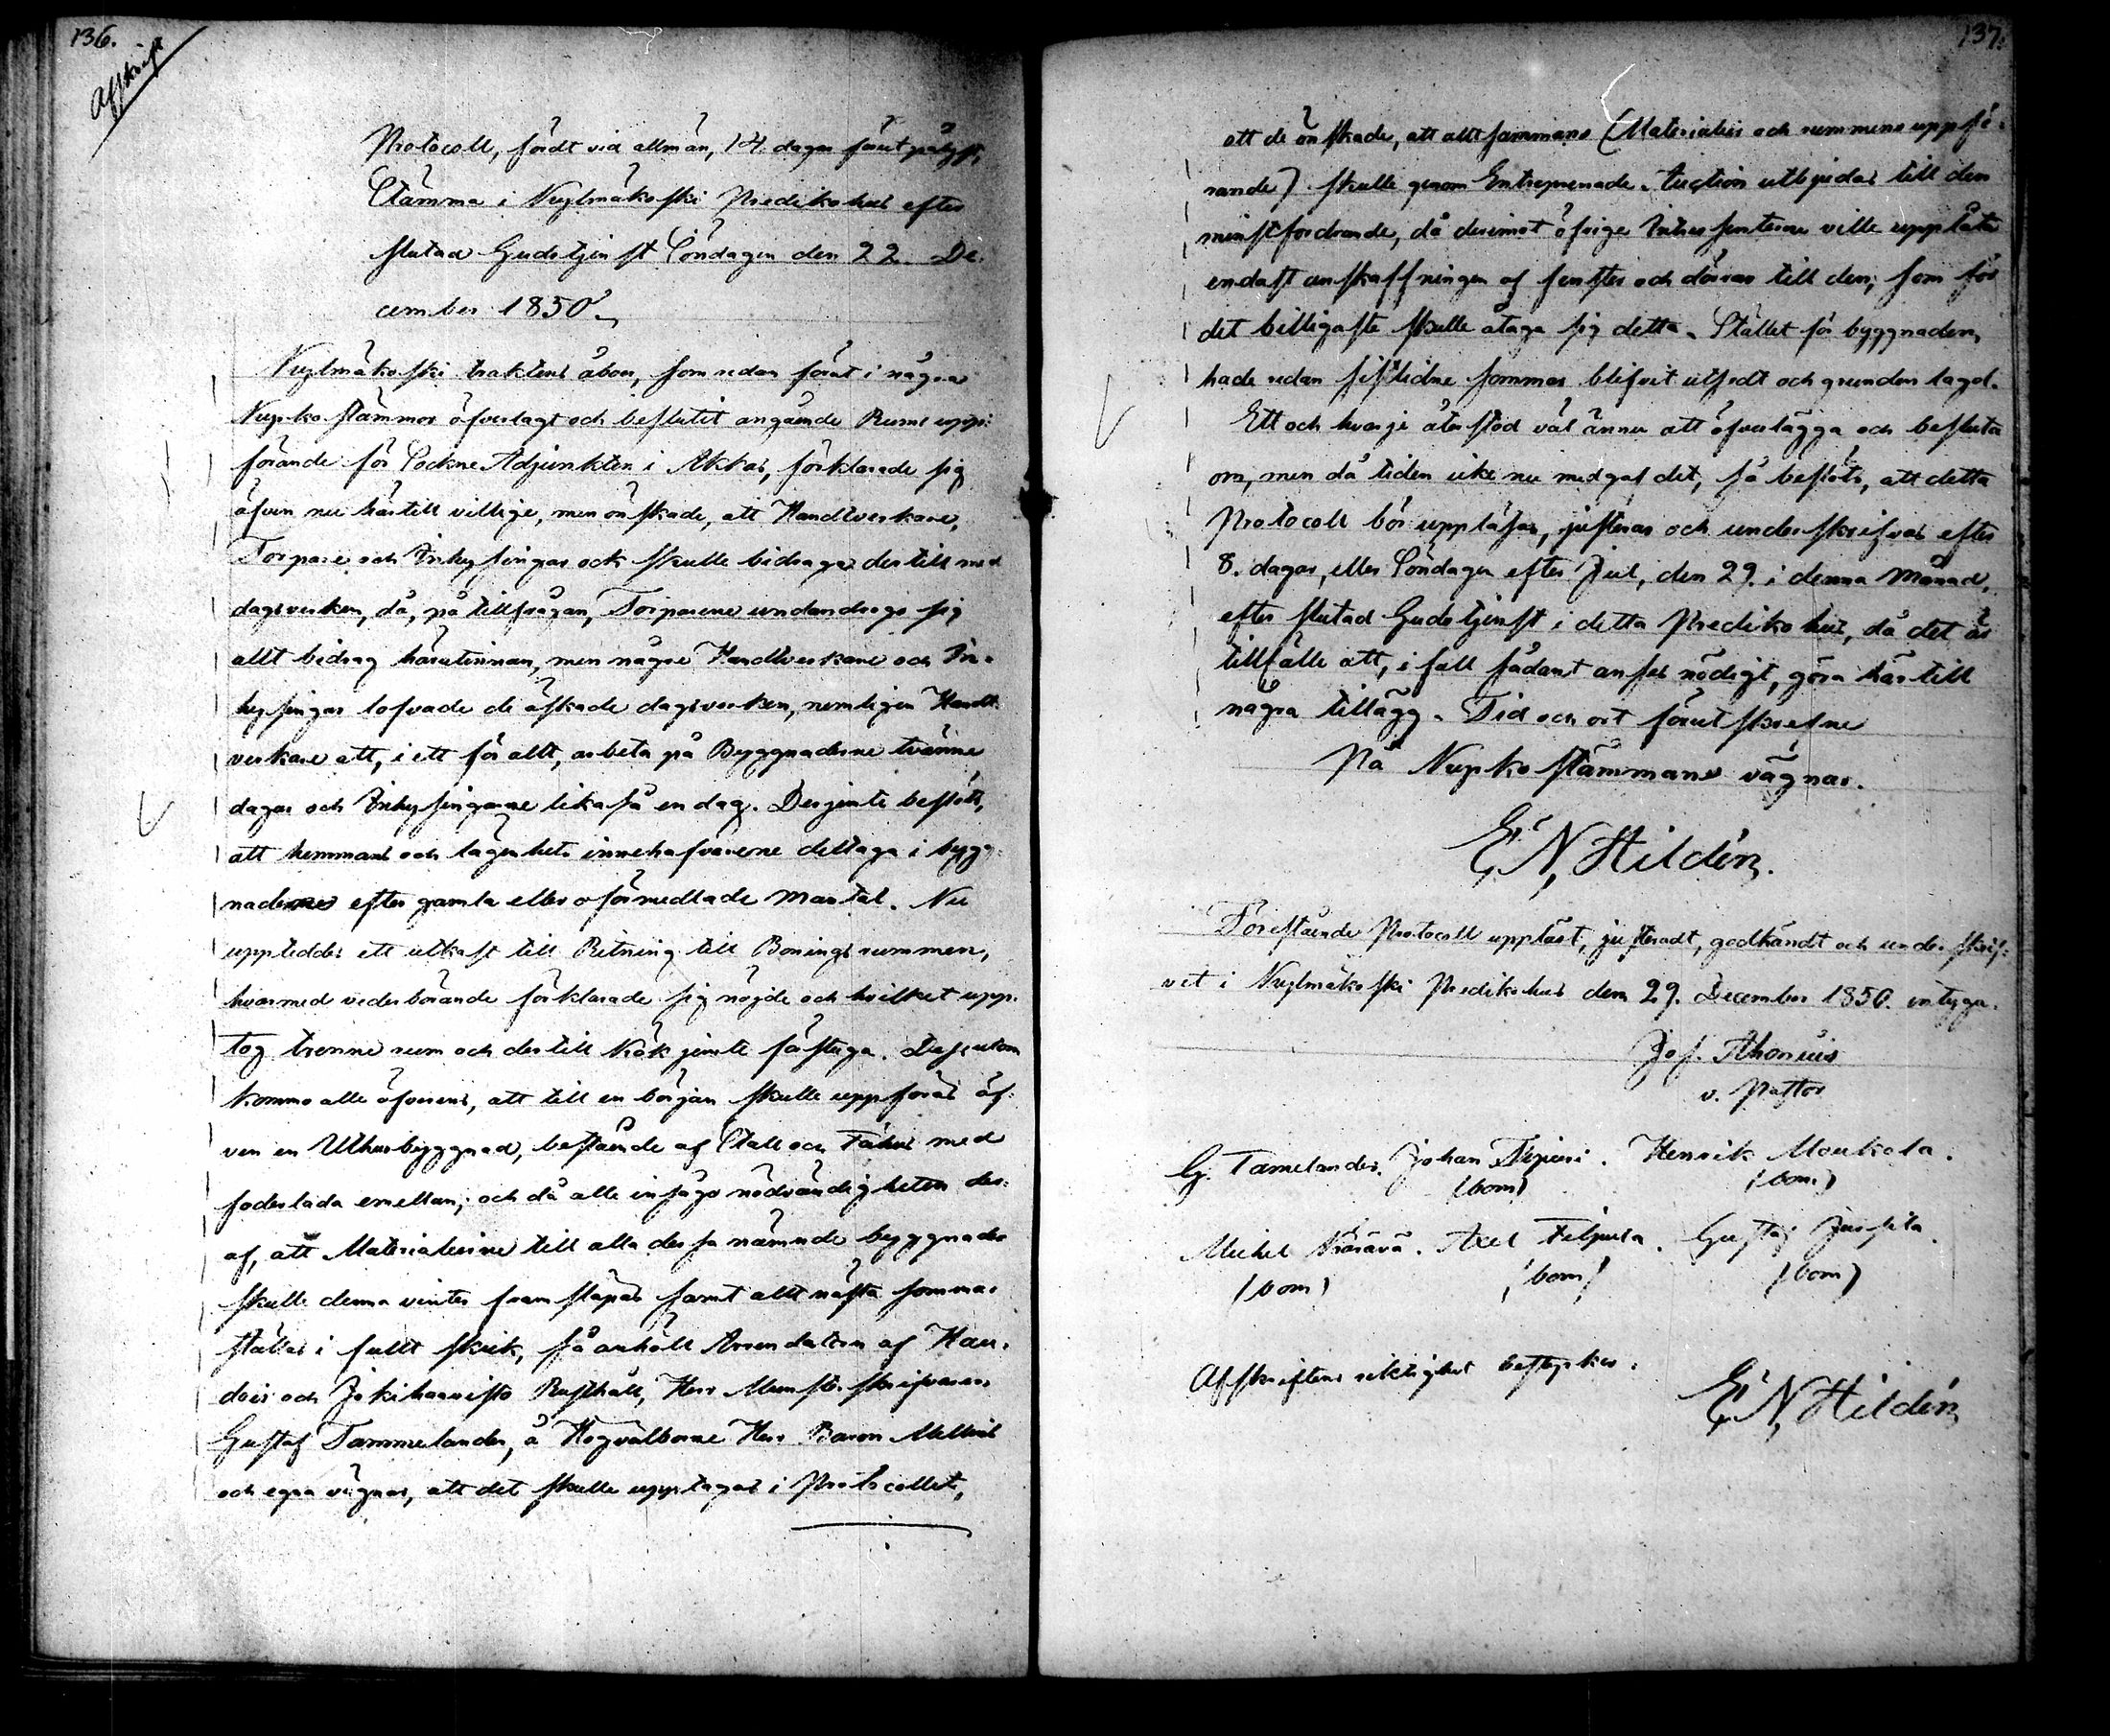 136.
Afskrift
Protocoll, fördt vid allmän, 14. dagar förut pålyst,
Stämma i Kylmäkoski Predikohus efter
slutad Gudstjenst Söndagen den 22. De-
cember 1850.
Kylmäkoski traktens åboer, som redan förut i några
Kyrkostämmor öfverlagt och beslutit angående Rums upp-
förande för Sockne Adjunkten i Akkas, förklarade sig
äfven nu härtill villige, men önskade, att Handtverkare,
Torpare och Inhysingar ock skulle bidraga dertill med
dagsverken, då, på tillfrågan, Torparene undandrogo sig
allt bidrag härutinnan, men någre Handtverkare och In-
hysingar lofvade de äskade dagsverken, nemligen Handt-
verkare att, i ett för allt, arbeta på Byggnaderne tvänne
dagar och Inhysingarne likaså en dag. Derjemte beslöts,
att hemmans och lägenhets innehafvarene deltaga i bygg-
naderne efter gamla eller oförmedlade mantal. Nu
uppteddes ett utkast till Ritning till Boningsrummen,
hvarmed vederbörande förklarade sig nöjde och hvilket upp-
tog trenne rum och dertill Kök jemte förstuga. Dessutom
kommo alle öfverens, att till en början skulle uppföras äf-
ven en Uthusbyggnad, bestående af Stall och Fähus med
foderlada emellan; och då alle insågo nödvändigheten der-
af, att Materialierne till alla dessa nämnde byggnader
skulle denna vinter framsläpas samt allt nästa sommar
ställas i fullt skick, så anhöll Arrendatorn af Hau-
dois och Jokihaavisto Rusthåll, Herr Munsterskrifvaren
Gustaf Tammelander, å Högvälborne Herr Baron Mellins
och egna vägnar, att det skulle upptagas i Protocollet,
137.
att de önskade, att alltsammans (Materialier och rummens uppfö-
rande) skulle genom Entreprenade-Auction utbjudas till den
minstfordrande, då deremot öfrige Intressenterne ville upplåta
endast anskaffningen af fenster och dörrar till den, som för
det billigaste skulle åtaga sig detta. Stället för byggnaden,
hade redan sistlidne sommar blifvit utsedt och grunden lagd.
Ett och hvarje återstod väl ännu att öfverlägga och besluta
om, men då tiden icke nu medgaf det, så beslöts, att detta
Protocoll bör uppläsas, justeras och underskrifvas efter
8. dagar, eller Söndagen efter Jul, den 29. i denna Månad,
efter slutad Gudstjenst i detta Predikohus, då det är
tillfälle att, i fall sådant anses nödigt, göra härtill
några tillägg. Tid och ort förutskrefne
På Kyrkostämmans vägnar.
E. N. Hildén.
Förestående Protocoll uppläst, justeradt, godkändt och underskrif-
vet i Kylmäkoski Predikohus den 29. December 1850. intyga.
Jos. Thoneus
v. Pastor
G. Tamelander. Johan . Henrik Moukola.
(bom) (bom.)
Michel . Axel Filpula. Gustaf Jussila.
(bom) (bom) (bom)
Afskriftens riktighet bestyrker.
E. N. Hildén